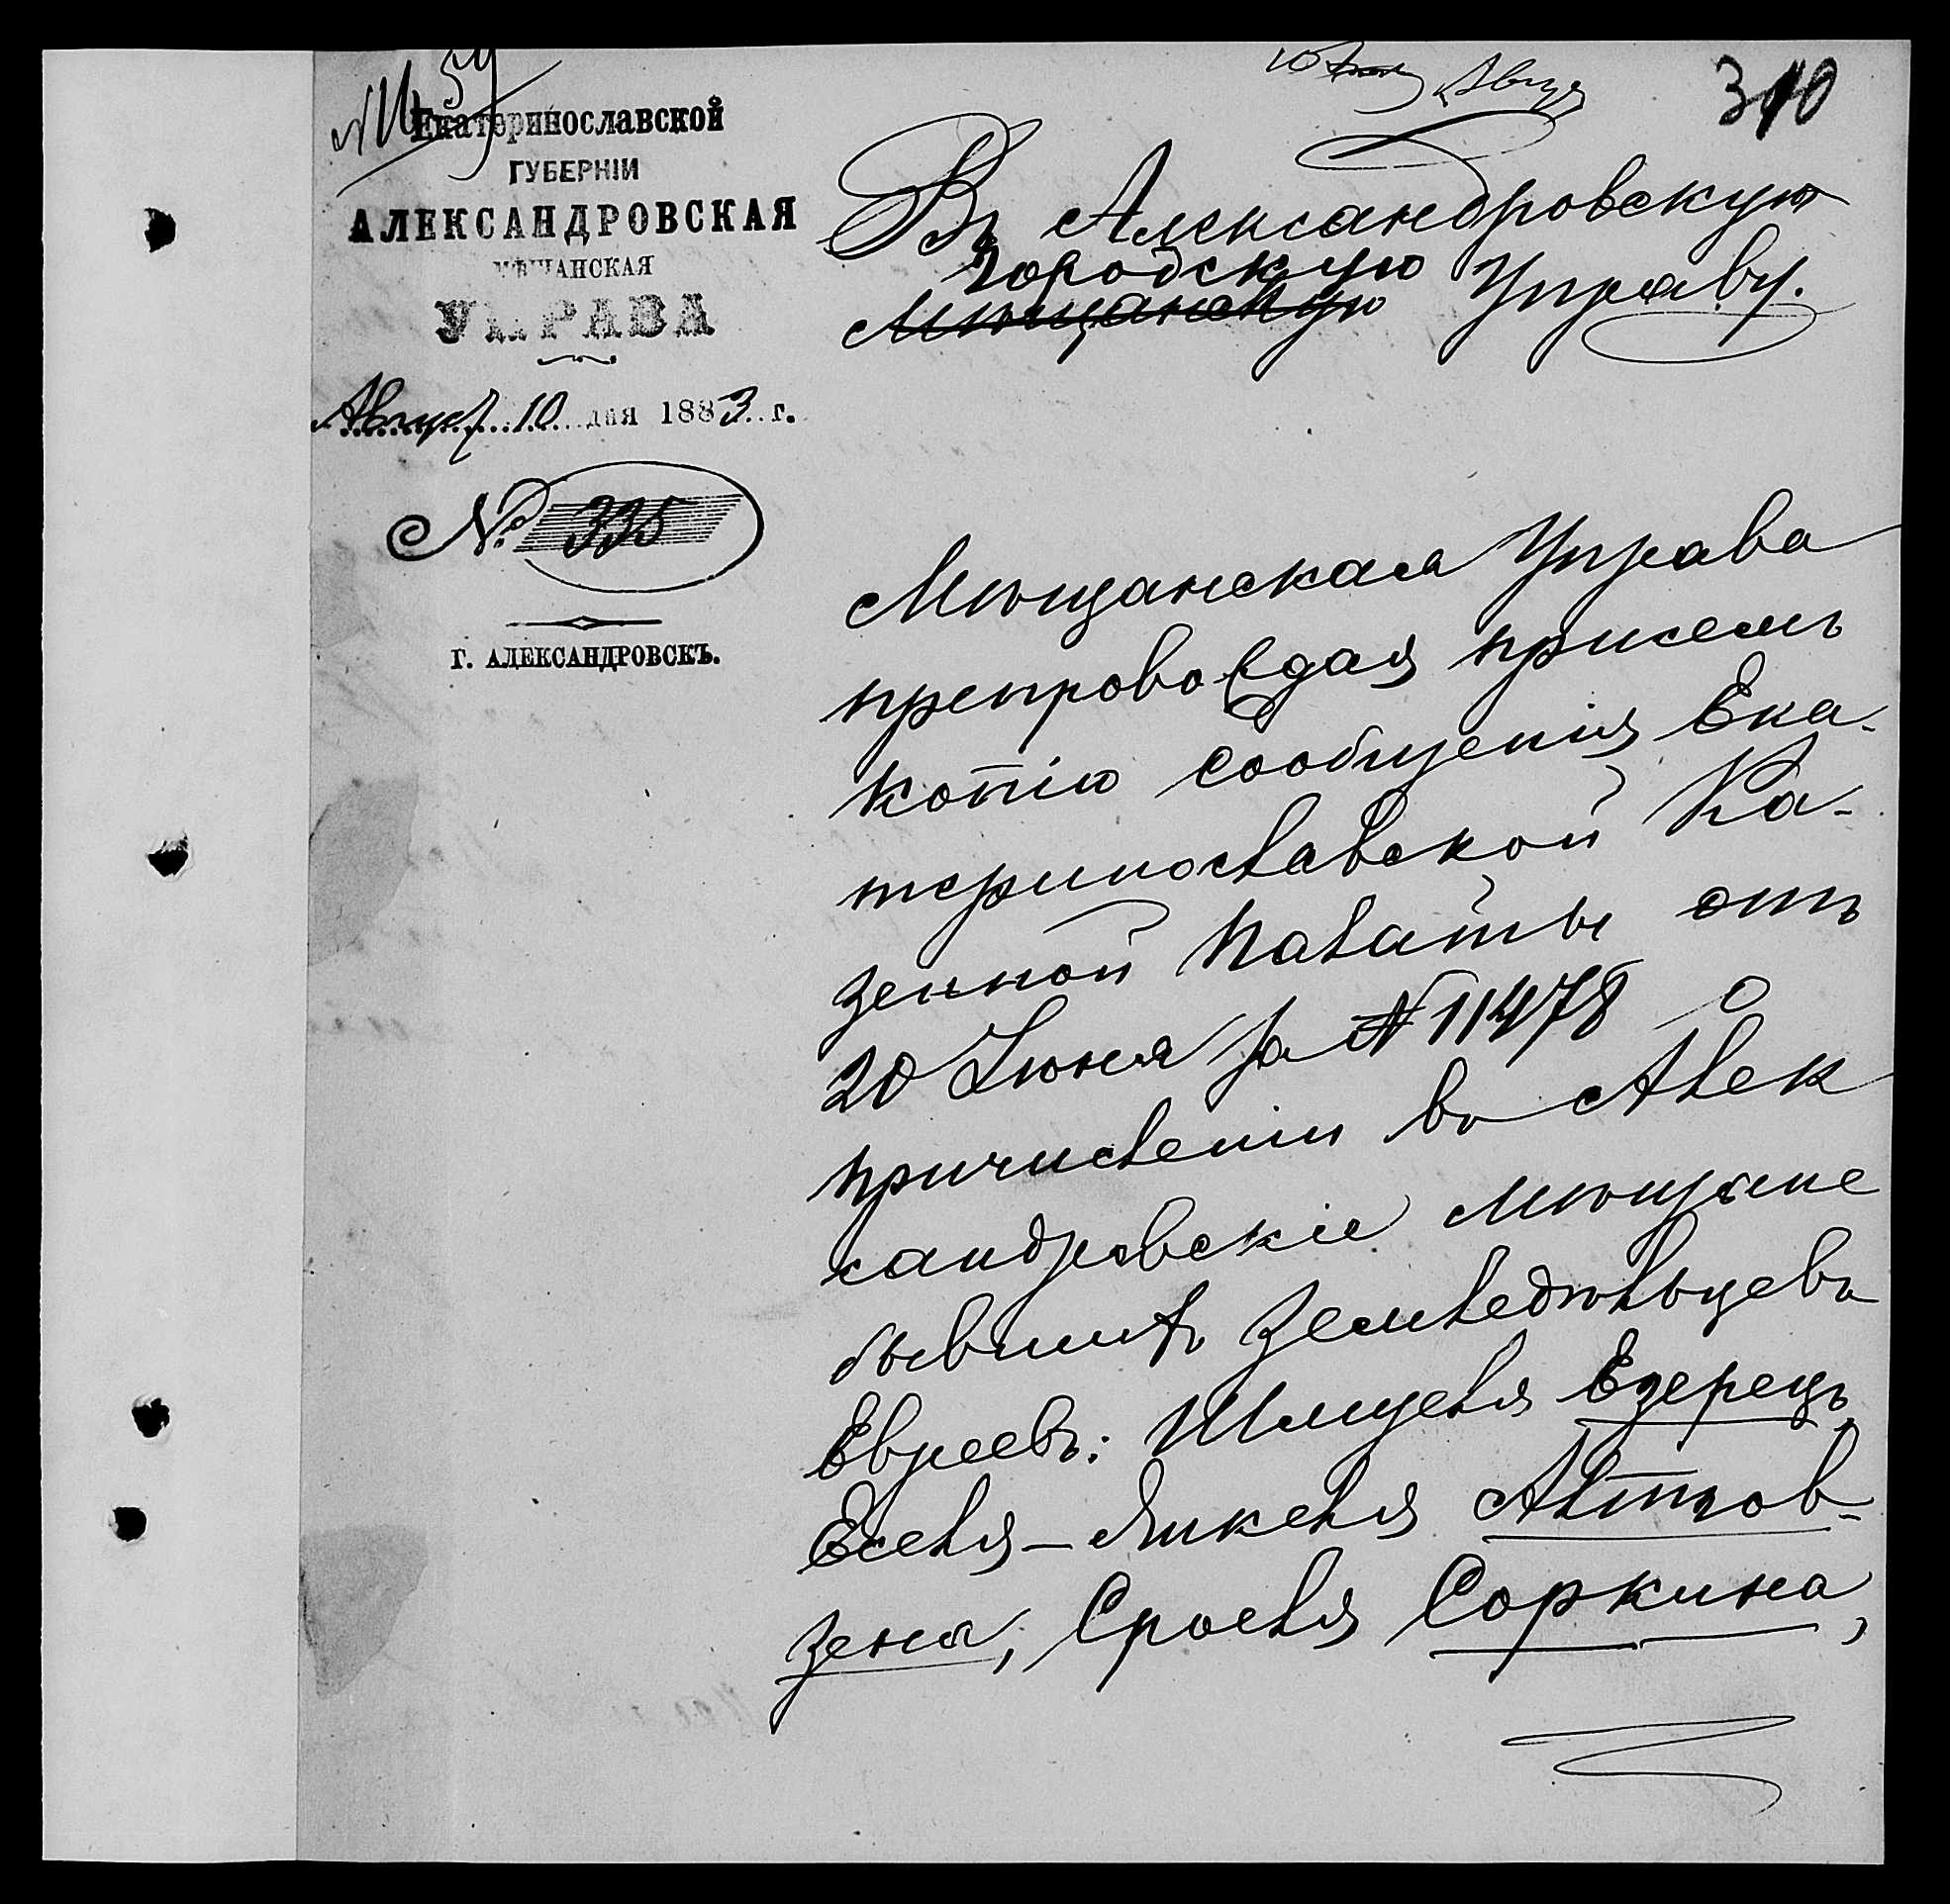 310
Екатеринославской
ГУБЕРНІИ
АЛЕКСАНДРОВСКАЯ
МѢЩАНСКАЯ
УПРАВА
Август 10 дня 1883 г.
№ 335
Г. АЛЕКСАНДРОВСКЪ.
Въ Александровскую
Городскую
Мѣщанскую Управу.
Мѣщанская Управа
препровождая присемъ
копію сообщенія Ека-
теринославской Ка-
зенной Палаты отъ
20 Іюня за № 11478 о
причисленіи въ Алек
сандровскіе мѣщане
бывшихъ Земледѣльцевъ
Евреевъ: Шмуеля Езерецъ,
Еселя-Янкеля
зена, Сроеля Соркина,